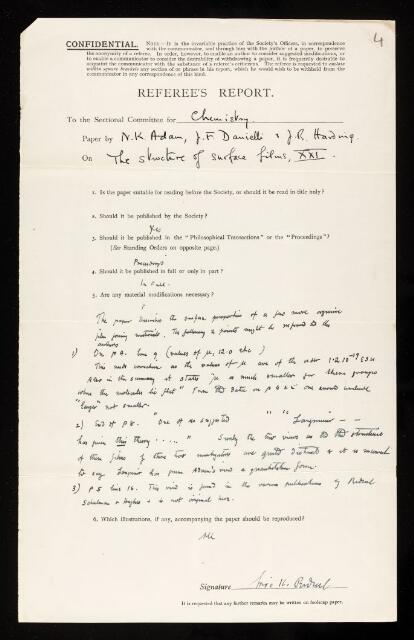 4
CONFIDENTIAL. NOTE—It is the invariable practice of the Society's Officers, in correspondence
with the communicator, and through him with the author of a paper, to preserve
the anonymity of a referee. In order, however, to enable an author to consider suggested modifications, or
to enable a communicator to consider the desirability of withdrawing a paper, it is frequently desirable to
acquaint the communicator with the substance of a referee's criticisms. The referee is requested to enclose
within square brackets any section of or phrases in his report, which he would wish to be withheld from the
communicator in any correspondence of this kind.
REFEREE'S REPORT.
To the Sectional Committee for Chemistry.
Paper by N. K Adam, J. F. Danielli & J. R. Harding.
On The structure of surface films, XXI.
1. Is the paper suitable for reading before the Society, or should it be read in title only?
2. Should it be published by the Society?
Yes
3. Should it be published in the "Philosophical Transactions" or the "Proceedings"?
(See Standing Orders on opposite page.)
Proceedings
4. Should it be published in full or only in part?
In full.
5. Are any material modifications necessary?
The paper describes the surface properties of a few more organic
film forming materials. The following points might be referred to the
authors
1) On p 4. line 9 (values of μ, 12.0 etc)
This needs correction as the values of μ are of the order 1.2 10⁻¹⁹ ESU
Also in the summary it states "μ is much smaller for these groups
when the molecules lie flat" from the data on p 4 & 5 one would conclude
"larger" not smaller.
2) End of p 8. "One of us suggested " " Langmuir — —
has given this theory . . . . . " Surely the two views as to the structure
of these films of these two investigators are quite distinct & it is incorrect
to say Langmuir has given Adam's view a quantitative form.
3) p 5 line 16. This view is found in the various publications of Rideal
Schulman & Hughes & is not original here.
6. Which illustrations, if any, accompanying the paper should be reproduced?
All
Signature Eric K. Rideal
It is requested that any further remarks may be written on foolscap paper.